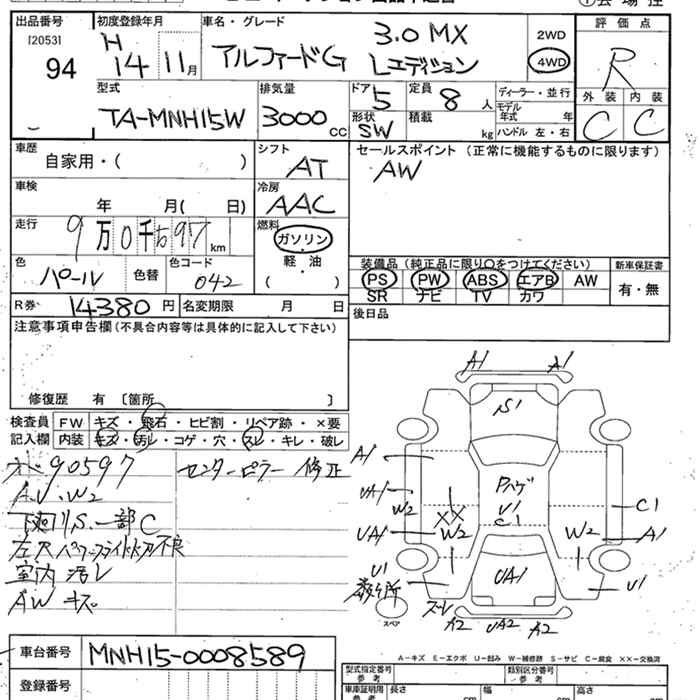 出品番号
[2053]
94
初度登録年月
H 14 11月
車名・グレード
アルファードG 3.0 MX
Lエディション
2WD
4WD
評価点
R
外装 内装
C C
型式
TA-MNH15W
排気量
3000 CC
ドア 5
形状 SW
定員 8 人
積載 kg
ディーラー・並行
モデル年式 年
ハンドル 左・右
車歴
自家用・( )
シフト
AT
セールスポイント (正常に機能するものに限ります)
AW
車検
年 月( 日)
冷房
AAC
走行
9万0千597 km
燃料
ガソリン
軽・油
( )
色
パール
色替
色コード
042
装備品 (純正品に限り○をつけてください)
PS PW ABS エアB AW
SR ナビ TV カワ
新車保証書
有・無
R券 14380 円
名変期限 月 日
後日品
注意事項申告欄 (不具合内容等は具体的に記入して下さい)
修復歴 有 〔箇所 〕
検査員記入欄
FW キズ・飛石・ヒビ割・リペア跡・×要
内装 キズ・汚レ・コゲ・穴・スレ・キレ・破レ
90597
センターピラー修正
A.U.W2
S.一部C
左 パワースライド 不良
室内汚レ
AWキズ
A1 A1
S1
A1
UA1
W2
UA1
U1
XX
W2
U1
C1
W2
C1
A1
U1
UA1
スペア
A2 UA2 A2
A-キズ E-エクボ U-凹み W-補修跡 S-サビ C-腐食 ××-交換済
車台番号
MNH15-0008589
登録番号
型式指定番号
参考
類別区分番号
参考
車庫証明用
参考
長さ cm
幅 cm
高さ cm